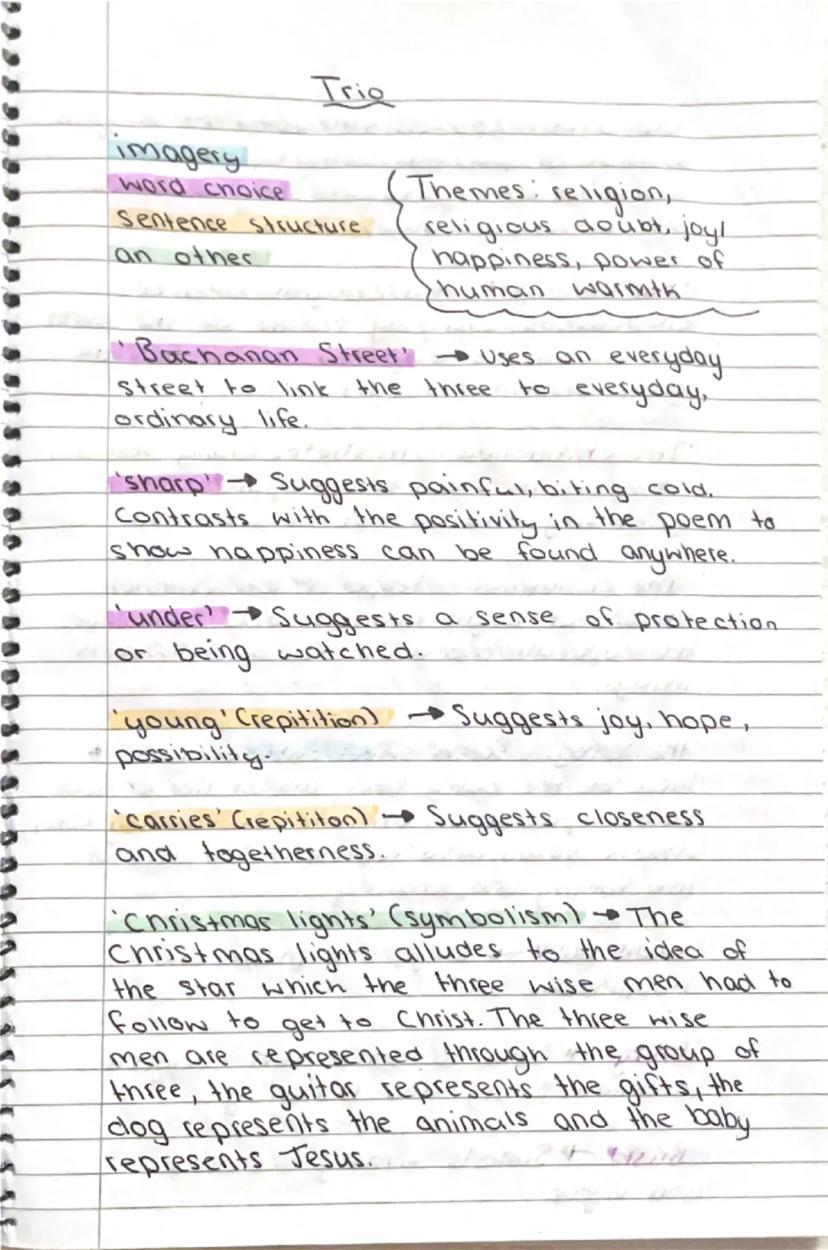 Trio
imagery
word choice
sentence structure
an other
Themes: religion,
religious doubt, joy/
happiness, power of
human warmth
'Buchanan Street' → Uses an everyday
street to link the three to everyday,
ordinary life.
'sharp' → Suggests painful, biting cold.
Contrasts with the positivity in the poem to
show happiness can be found anywhere.
'under' → Suggests a sense of protection
or being watched.
'young' (repitition) → Suggests joy, hope,
possibility.
'carries' (repititon) → Suggests closeness
and togetherness.
'Christmas lights' (symbolism) → The
Christmas lights alludes to the idea of
the star which the three wise men had to
follow to get to Christ. The three wise
men are represented through the group of
three, the guitar represents the gifts, the
dog represents the animals and the baby
represents Jesus.